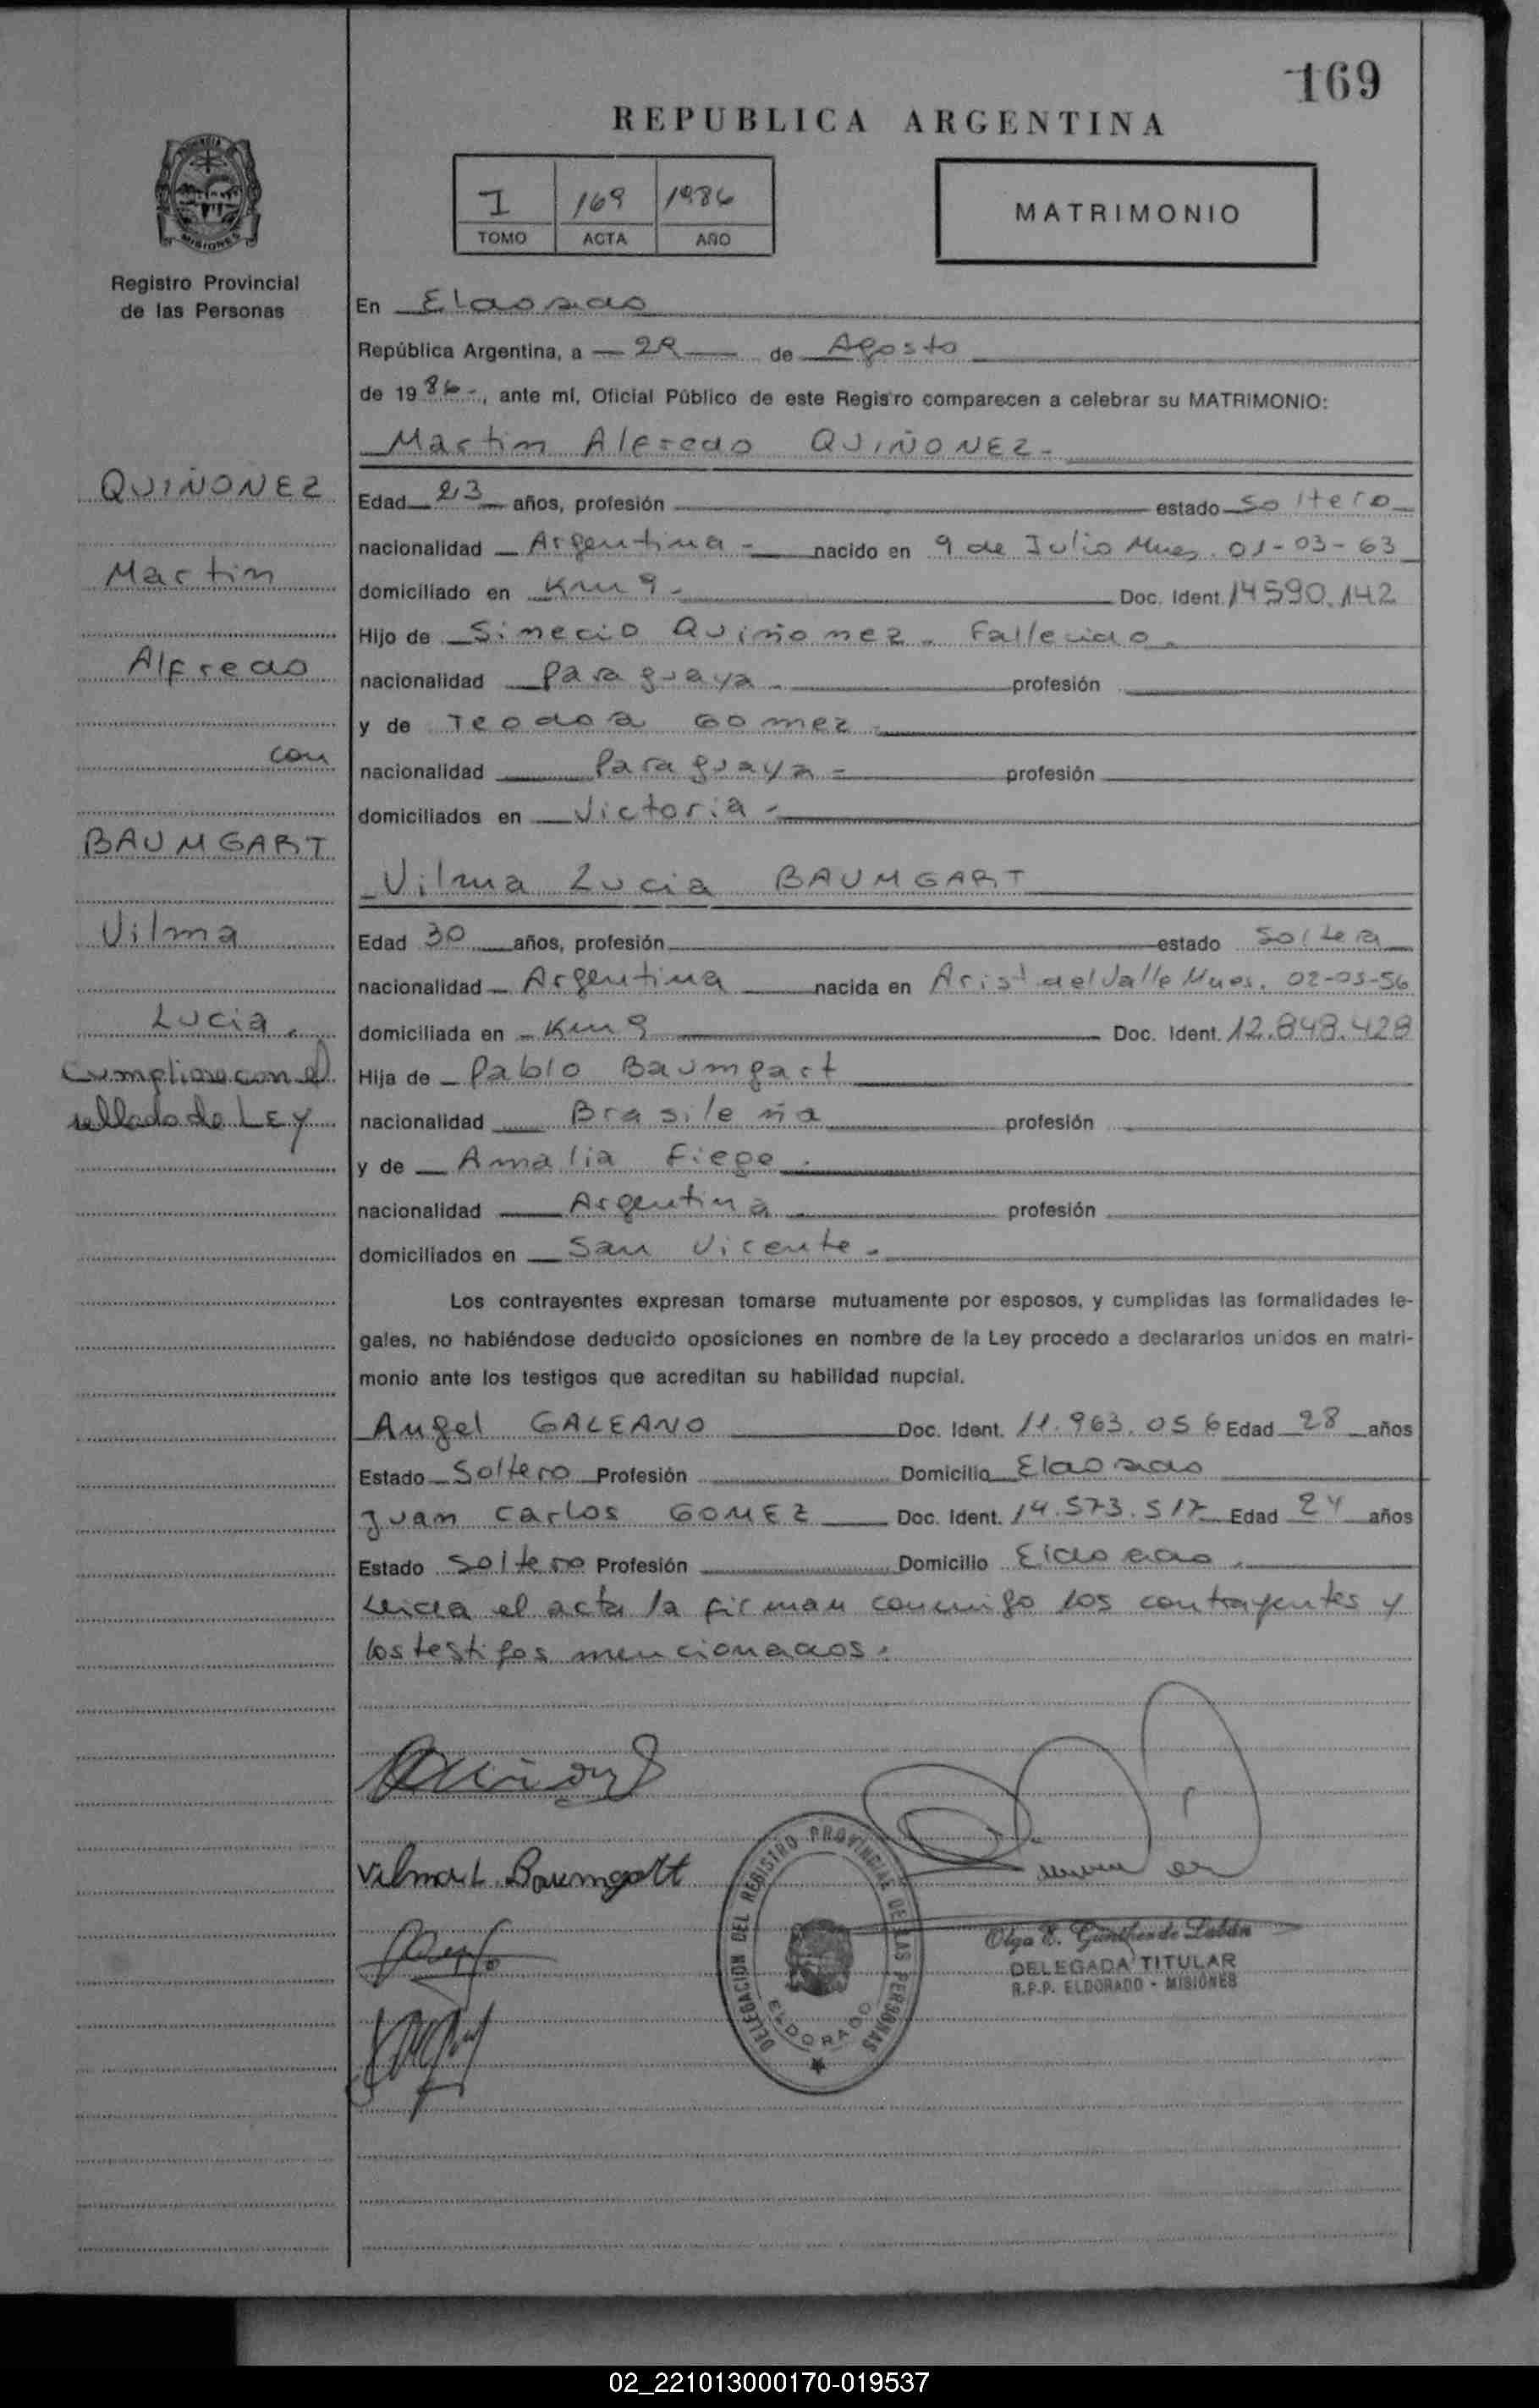 169
REPUBLICA ARGENTINA
I 169 1986
TOMO ACTA AÑO
MATRIMONIO
PROVINCIA
MISIONES
Registro Provincial
de las Personas
En Eldorado
República Argentina, a — 29 — de Agosto
de 1986-, ante mí, Oficial Público de este Registro comparecen a celebrar su MATRIMONIO:
Martin Alfredo QUIÑONEZ-
Edad 23 años, profesión estado Soltero
nacionalidad Argentina - nacido en 9 de Julio Mnes. 01-03-63
domiciliado en Km 9 - Doc. Ident. 14590.142
Hijo de Sinecio Quiñonez. Fallecido.
nacionalidad Paraguaya - profesión
y de Teodora Gomez.
nacionalidad Paraguaya - profesión
domiciliados en Victoria -
Vilma Lucia BAUMGART
Edad 30 años, profesión estado Soltera
nacionalidad Argentina nacida en Arist del Valle Mnes. 02-03-56
domiciliada en - Km 9 Doc. Ident. 12.848.428
Hija de Pablo Baumgart
nacionalidad Brasileña profesión
y de Amalia Fiege.
nacionalidad Argentina profesión
domiciliados en San Vicente.
Los contrayentes expresan tomarse mutuamente por esposos, y cumplidas las formalidades le-
gales, no habiéndose deducido oposiciones en nombre de la Ley procedo a declararlos unidos en matri-
monio ante los testigos que acreditan su habilidad nupcial.
Angel GALEANO Doc. Ident. 11.963.056 Edad 28 años
Estado Soltero Profesión Domicilio Eldorado
Juan Carlos GOMEZ Doc. Ident. 14.573.517 Edad 24 años
Estado Soltero Profesión Domicilio Eldorado.
Leida el acta la firman conmigo los contrayentes y
los testigos mencionados.
QUIÑONEZ
Martin
Alfredo
con
BAUMGART
Vilma
Lucia.
Cumpliose con el
sellado de LEY
Vilma L. Baumgart
DELEGACION DEL REGISTRO PROVINCIAL DE LAS PERSONAS
ELDORADO
Olga E.
DELEGADA TITULAR
R.P.P. ELDORADO - MISIONES
02_221013000170-019537